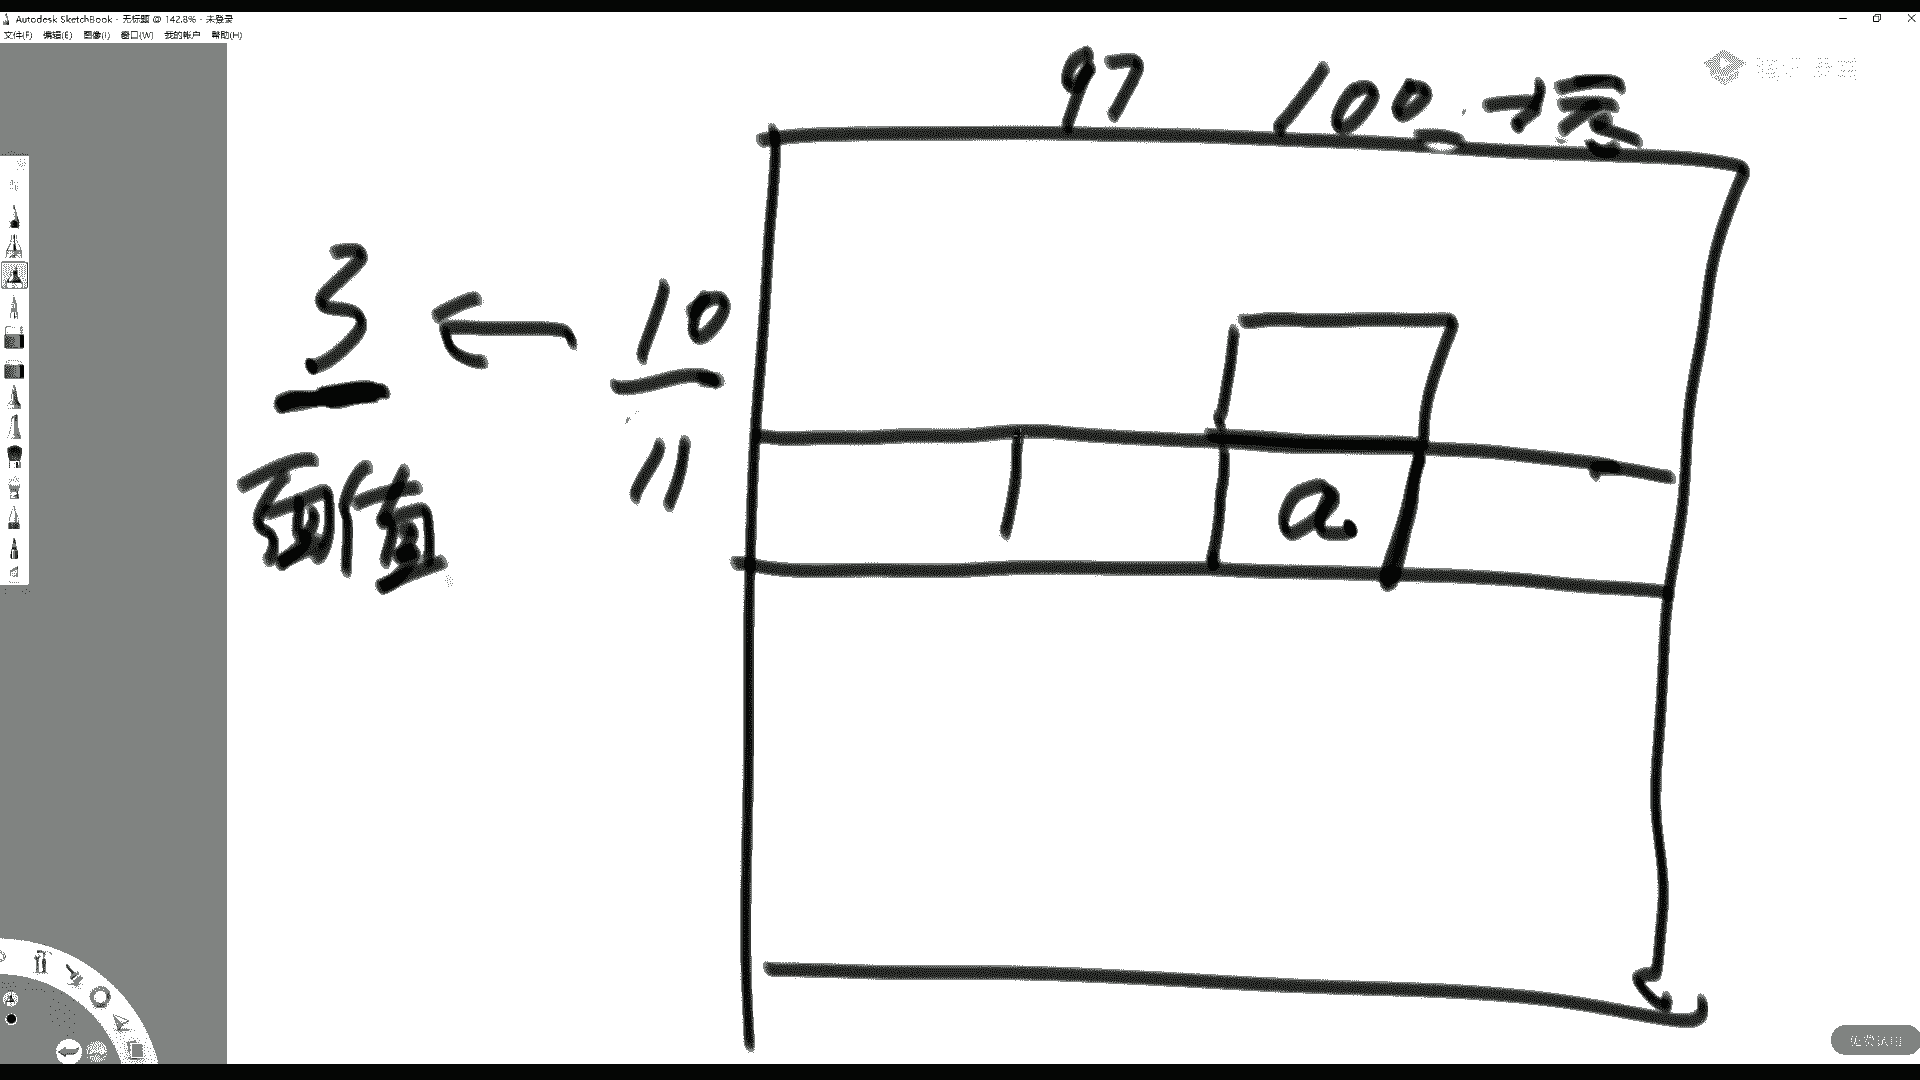 Autodesk SketchBook - 无标题 @ 142.8% - 未登录
文件(F) 编辑(E) 图像(I) 窗口(W) 我的帐户 帮助(H)
97 100
3 ← 10
11
a
面值